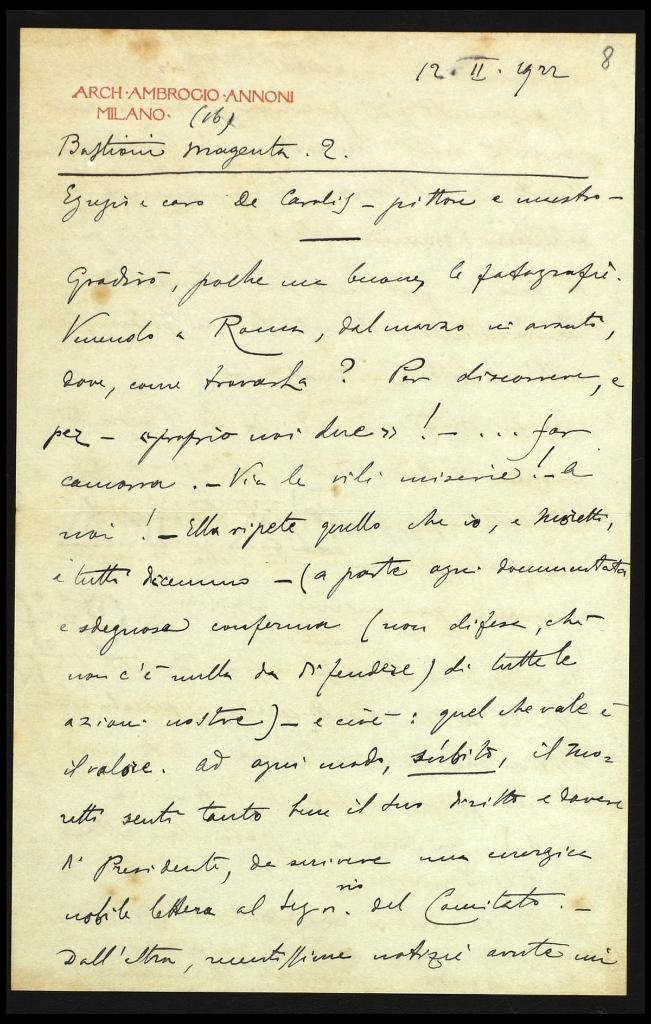 12. II. 1922
8
ARCH·AMBROGIO·ANNONI
MILANO· (16)
Bastioni Magenta. 2.
Egregio e caro De Carolis – pittore e maestro –
Gradirò, poche ma buone, le fotografie.
Venendo a Roma, dal marzo in avanti,
dove, come trovarla? Per discorrere, e
per – «proprio noi due»! – ... far
camorra. – Via le vili miserie! – A
noi! – Ella ripete quello che io, e Moretti,
e tutti dicemmo – (a parte ogni documentata
e sdegnosa conferma (non difesa, chè
non c'è nulla da difendere) di tutte le
azioni nostre) – e cioè: quel che vale è
il valore. Ad ogni modo, subito, il Mo=
retti sentì tanto bene il suo diritto e dovere
di Presidente, da scrivere una energica
nobile lettera al Segr.rio del Comitato. –
Dall'altra, recentissime notizie avute mi